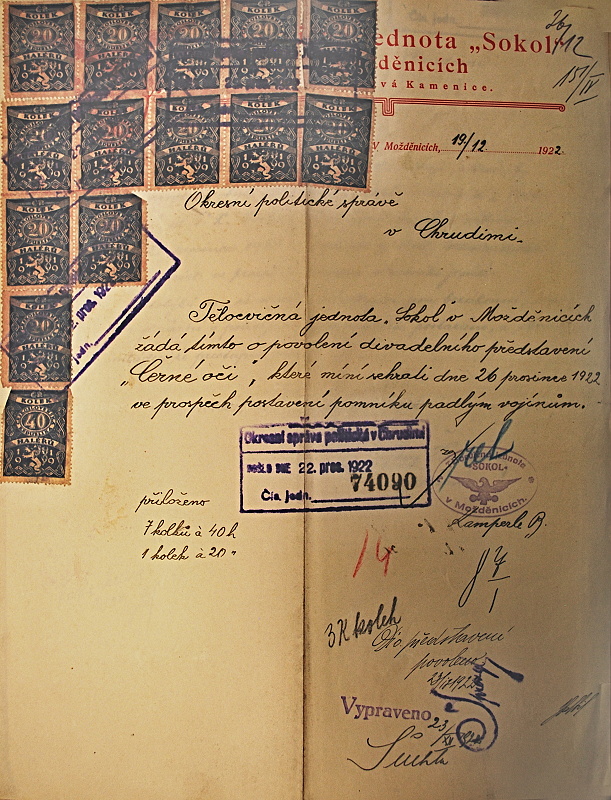 Čís. jedn.
26/12
ednota „Sokol“
žděnicích
vá Kamenice.
151/IV
V Možděnicích, 19/12 1922
KOLEK
20
HALÉŘŮ
1920
Okresní politické správě
v Chrudimi.
Tělocvičná jednota „Sokol“ v Možděnicích
žádá tímto o povolení divadelního představení
„Černé oči“, které míní sehrati dne 26 prosince 1922
ve prospěch postavení pomníku padlým vojínům.
KOLEK
40
HALÉŘŮ
Okresní správa politická v Chrudimi
DOŠLO DNE 22. pros. 1922
Čís. jedn. 74090
"SOKOL"
v Možděnicích.
Lamperle B.
přiloženo
7 kolků à 40 h
1 kolek à 20 "
14
3 K kolek
představení
povoleno
Vypraveno
23/XII
Suchta